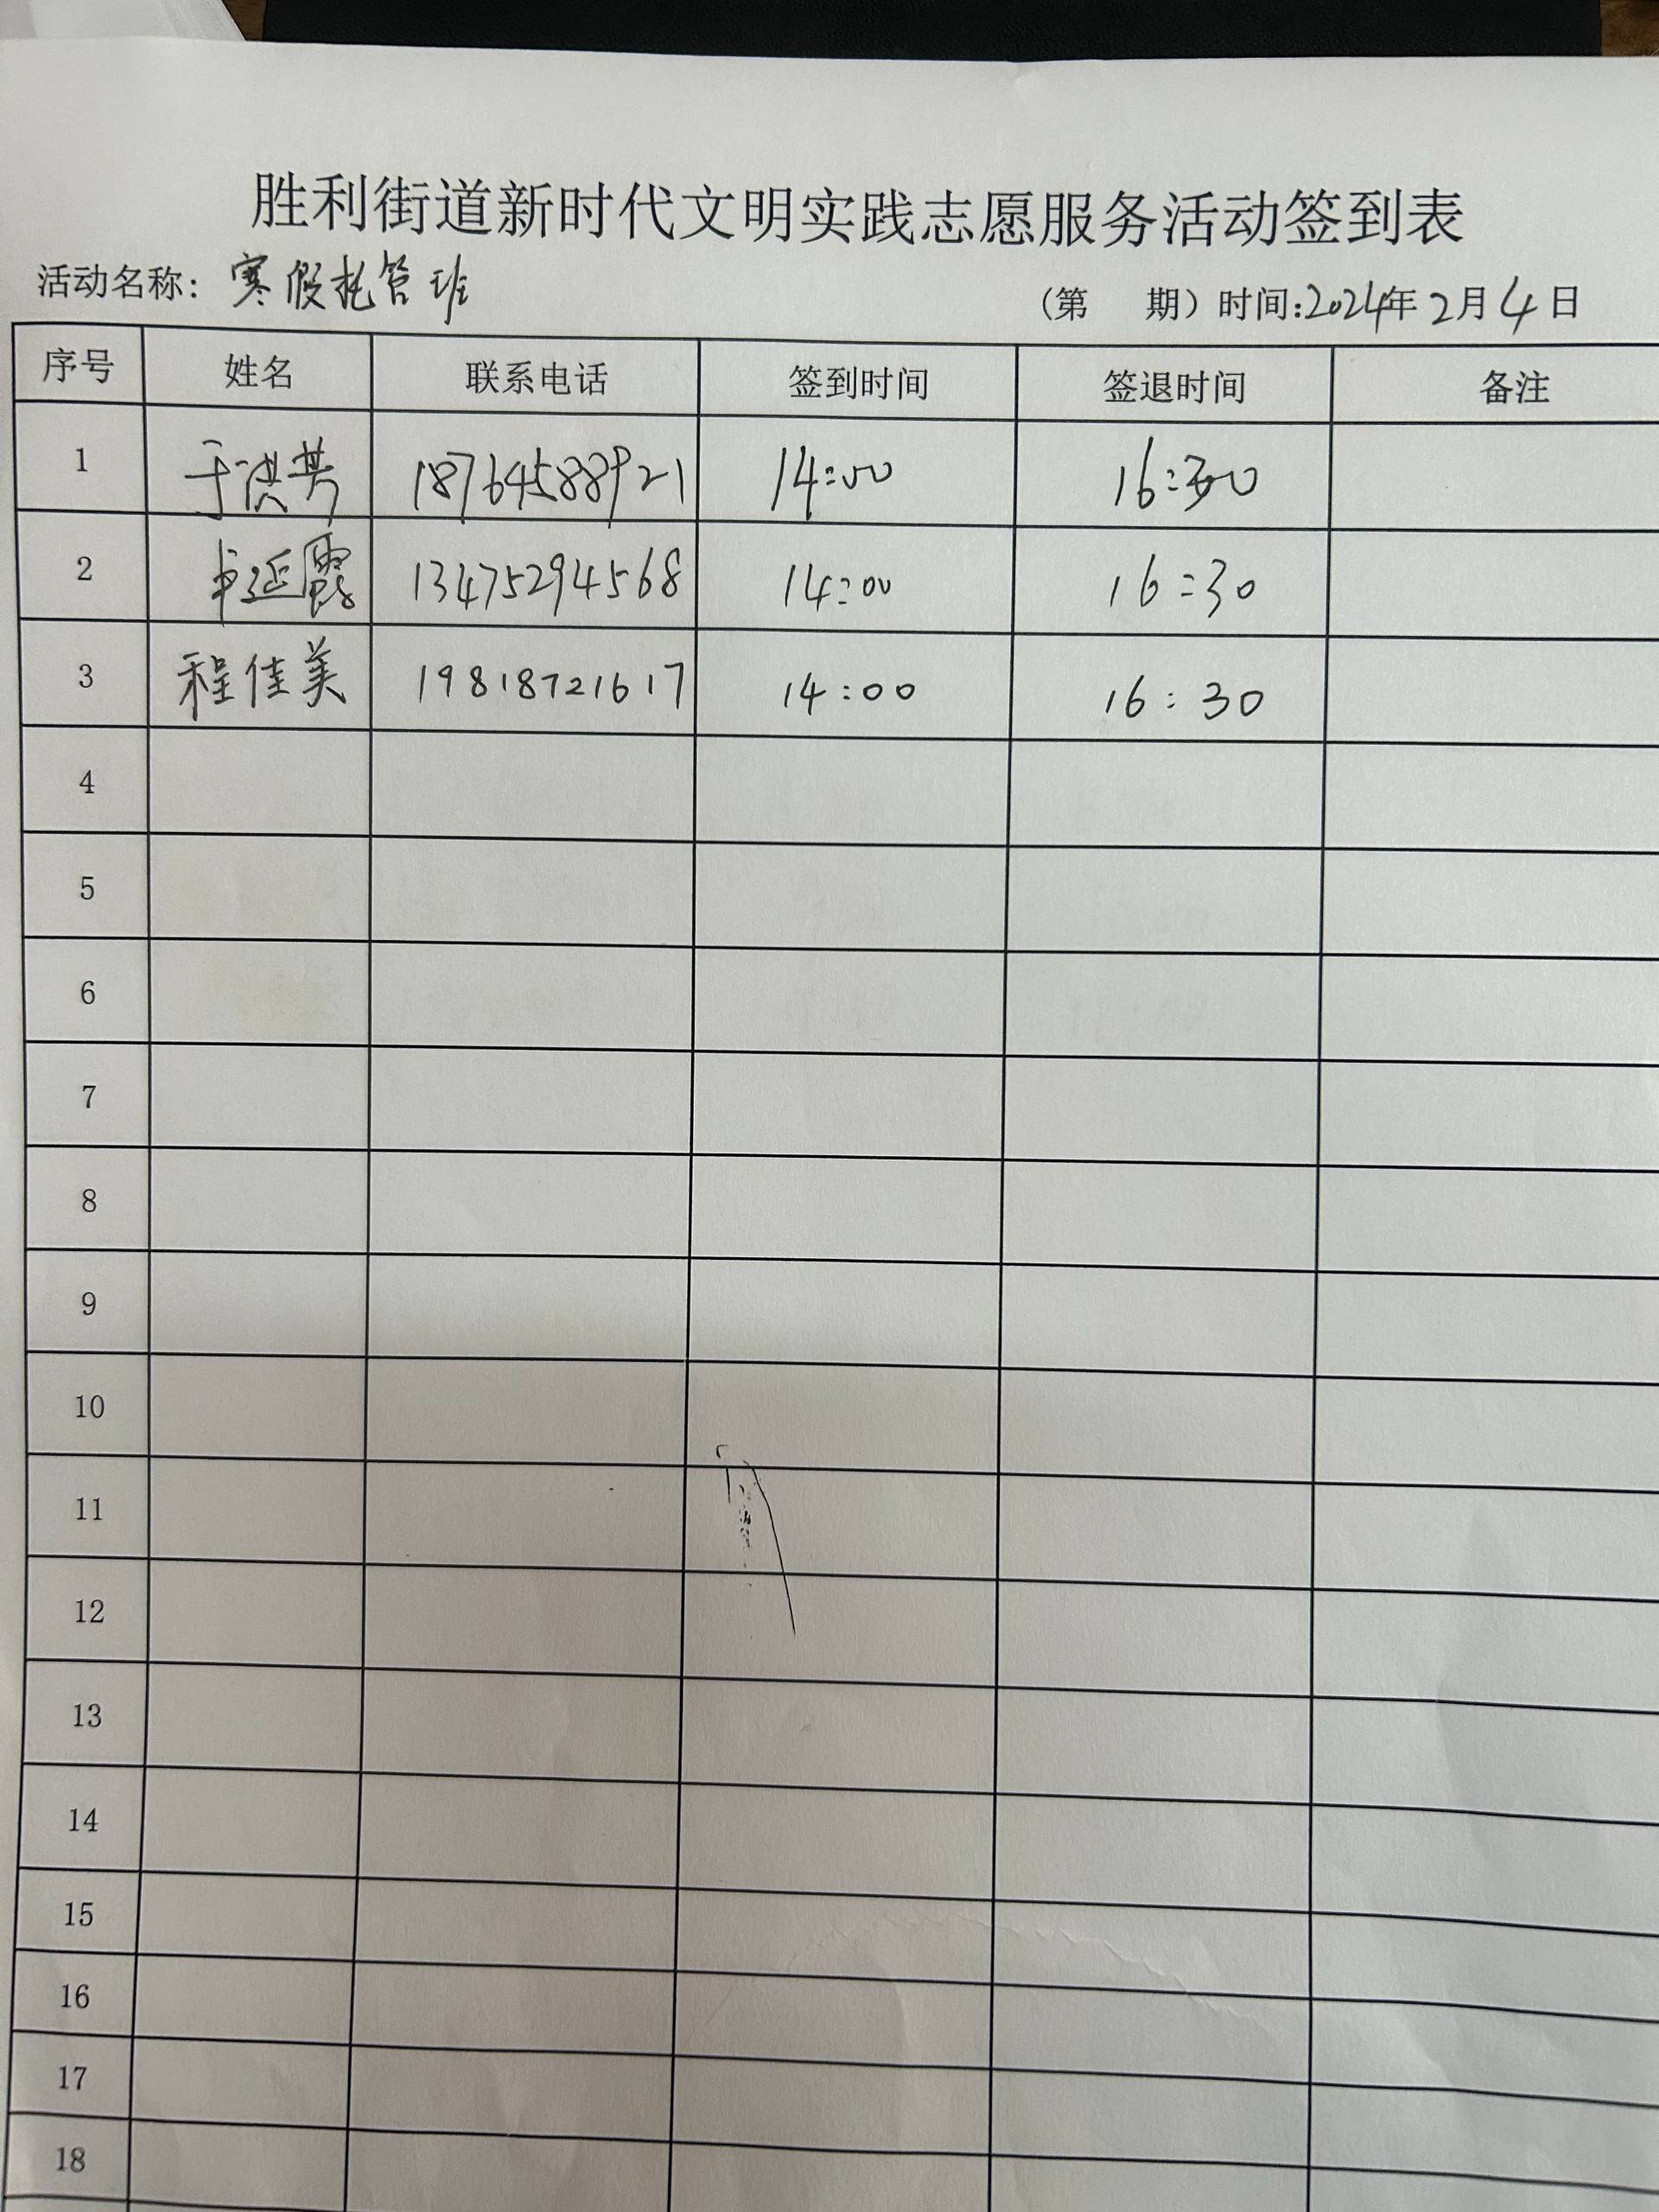 胜利街道新时代文明实践志愿服务活动签到表
活动名称：寒假托管班 （第 期）时间:2024年2月4日
序号 姓名 联系电话 签到时间 签退时间 备注
1 于洪芳 18764588921 14:00 16:30
2 延霞 13475294568 14:00 16:30
3 程佳美 19818721617 14:00 16:30
4
5
6
7
8
9
10
11
12
13
14
15
16
17
18